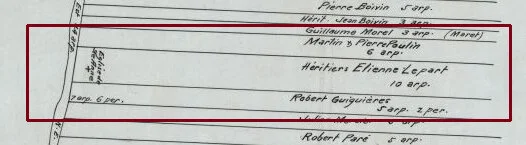 Pierre Boivin 5 arp.
Hérit. Jean Boivin 3 arp.
Guillaume Morel 3 arp. (Moret)
Martin & Pierre Poulin
6 arp.
Héritiers Etienne Lepart
10 arp.
7 arp. 6 per.
Robert Guiguières
5 arp. 2 per.
Robert Paré 5 arp.